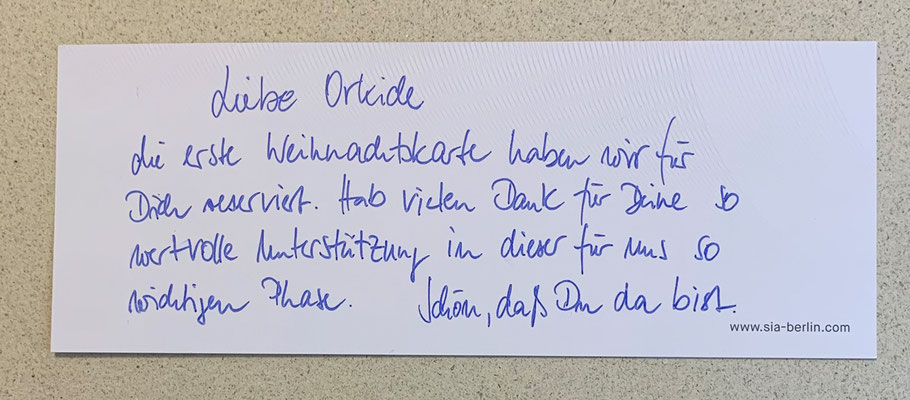 Liebe Orkide
die erste Weihnachtskarte haben wir für
Dich reserviert. Hab vielen Dank für Deine so
wertvolle Unterstützung in dieser für uns so
wichtigen Phase. Schön, daß Du da bist.
www.sia-berlin.com